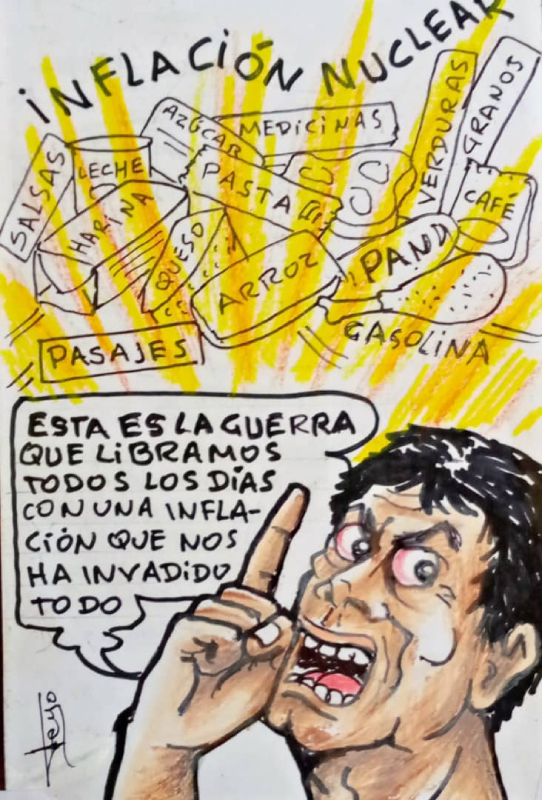 INFLACIÓN NUCLEAR
AZÚCAR
MEDICINAS
VERDURAS
GRANOS
SALSAS
LECHE
PASTA
CAFÉ
HARINA
QUESO
ARROZ
PAND
GASOLINA
PASAJES
ESTA ES LA GUERRA
QUE LIBRAMOS
TODOS LOS DÍAS
CON UNA INFLA-
CIÓN QUE NOS
HA INVADIDO
TODO